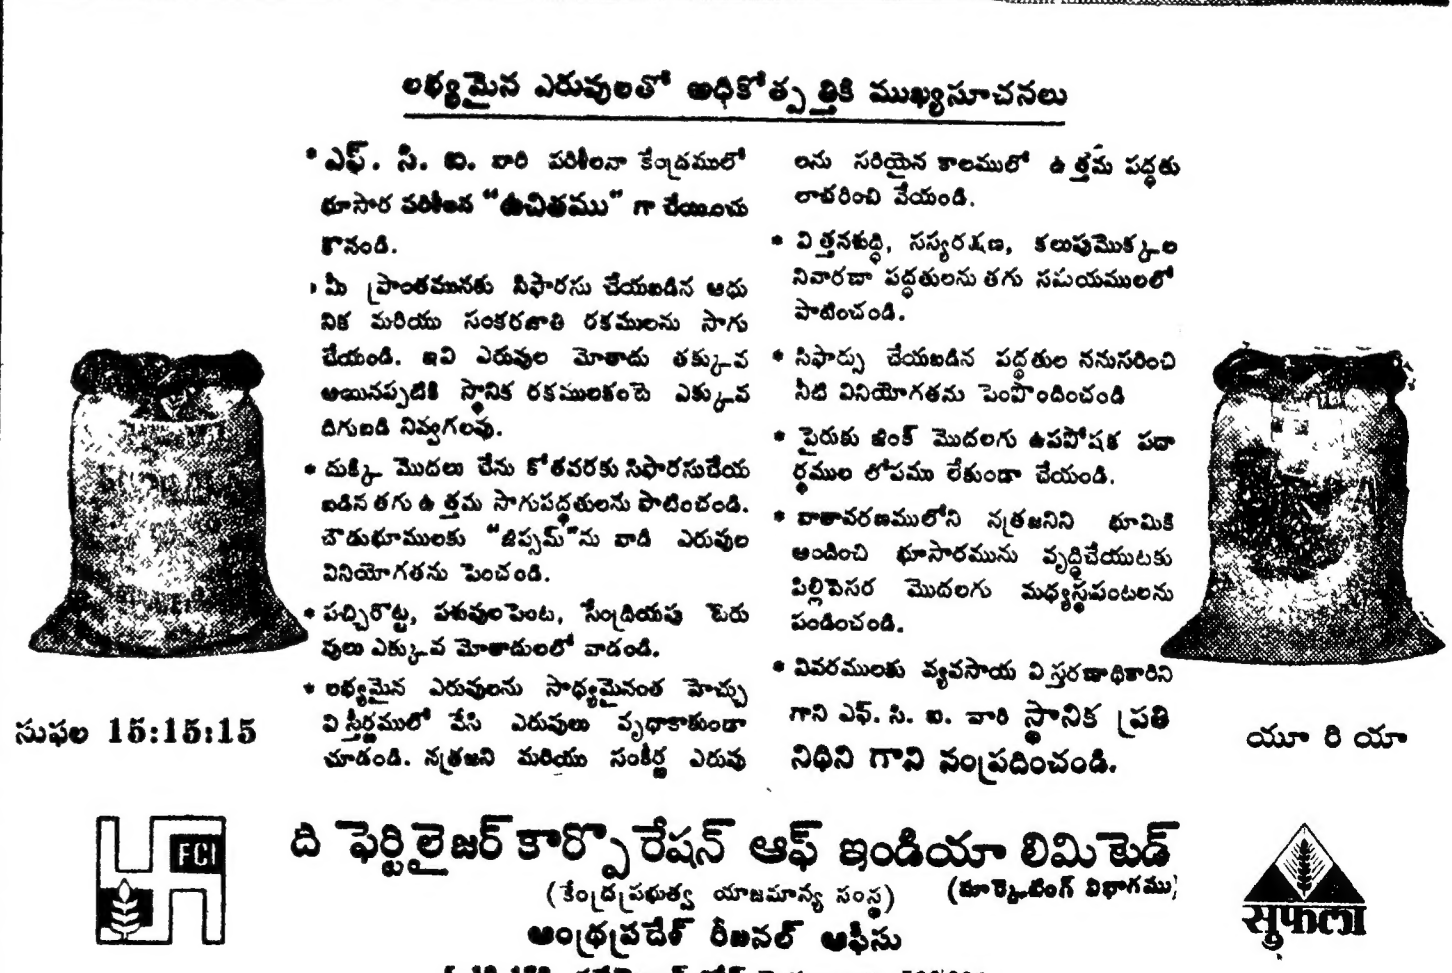 లభ్యమైన ఎరువులతో అధికోత్పత్తికి ముఖ్యసూచనలు
* ఎఫ్. సి. ఐ. వారి పరిశీలనా కేంద్రములో
భూసార పరిశీలన "ఉచితము" గా చేయించు
కొనండి.
* మీ ప్రాంతమునకు సిఫారసు చేయబడిన ఆధు
నిక మరియు సంకరజాతి రకములను సాగు
చేయండి. ఇవి ఎరువుల మోతాదు తక్కువ
అయినప్పటికి స్థానిక రకములకంటె ఎక్కువ
దిగుబడి నివ్వగలవు.
* దుక్కి మొదలు చేను కోతవరకు సిఫారసుచేయ
బడిన తగు ఉత్తమ సాగుపద్ధతులను పాటించండి.
చౌడుభూములకు "జిప్సమ్"ను వాడి ఎరువుల
వినియోగతను పెంచండి.
* పచ్చిరొట్ట, పశువులపెంట, సేంద్రియపు ఓరు
వులు ఎక్కువ మోతాదులలో వాడండి.
* లభ్యమైన ఎరువులను సాధ్యమైనంత హెచ్చు
విస్తీర్ణములో వేసి ఎరువులు వృధాకాకుండా
చూడండి. నత్రజని మరియు సంకీర్ణ ఎరువు
లను సరియైన కాలములో ఉత్తమ పద్ధతు
లాచరించి వేయండి.
* విత్తనశుద్ధి, సస్యరక్షణ, కలుపుమొక్కల
నివారణా పద్ధతులను తగు సమయములలో
పాటించండి.
* సిఫార్సు చేయబడిన పద్ధతుల ననుసరించి
నీటి వినియోగతను పెంపొందించండి
* పైరుకు జింక్ మొదలగు ఉపపోషక పదా
ర్థముల లోపము లేకుండా చేయండి.
* వాతావరణములోని నత్రజనిని భూమికి
అందించి భూసారమును వృద్ధిచేయుటకు
పిల్లిపెసర మొదలగు మధ్యస్థపంటలను
పండించండి.
* వివరములకు వ్యవసాయ విస్తరణాధికారిని
గాని ఎఫ్. సి. ఐ. వారి స్థానిక ప్రతి
నిధిని గాని సంప్రదించండి.
సుఫల 15:15:15
యూ రి యా
FCI
ది ఫెర్టిలైజర్ కార్పొరేషన్ ఆఫ్ ఇండియా లిమిటెడ్
(కేంద్రప్రభుత్వ యాజమాన్య సంస్థ) (మార్కెటింగ్ విభాగము)
ఆంధ్రప్రదేశ్ రీజనల్ ఆఫీసు
सुफला